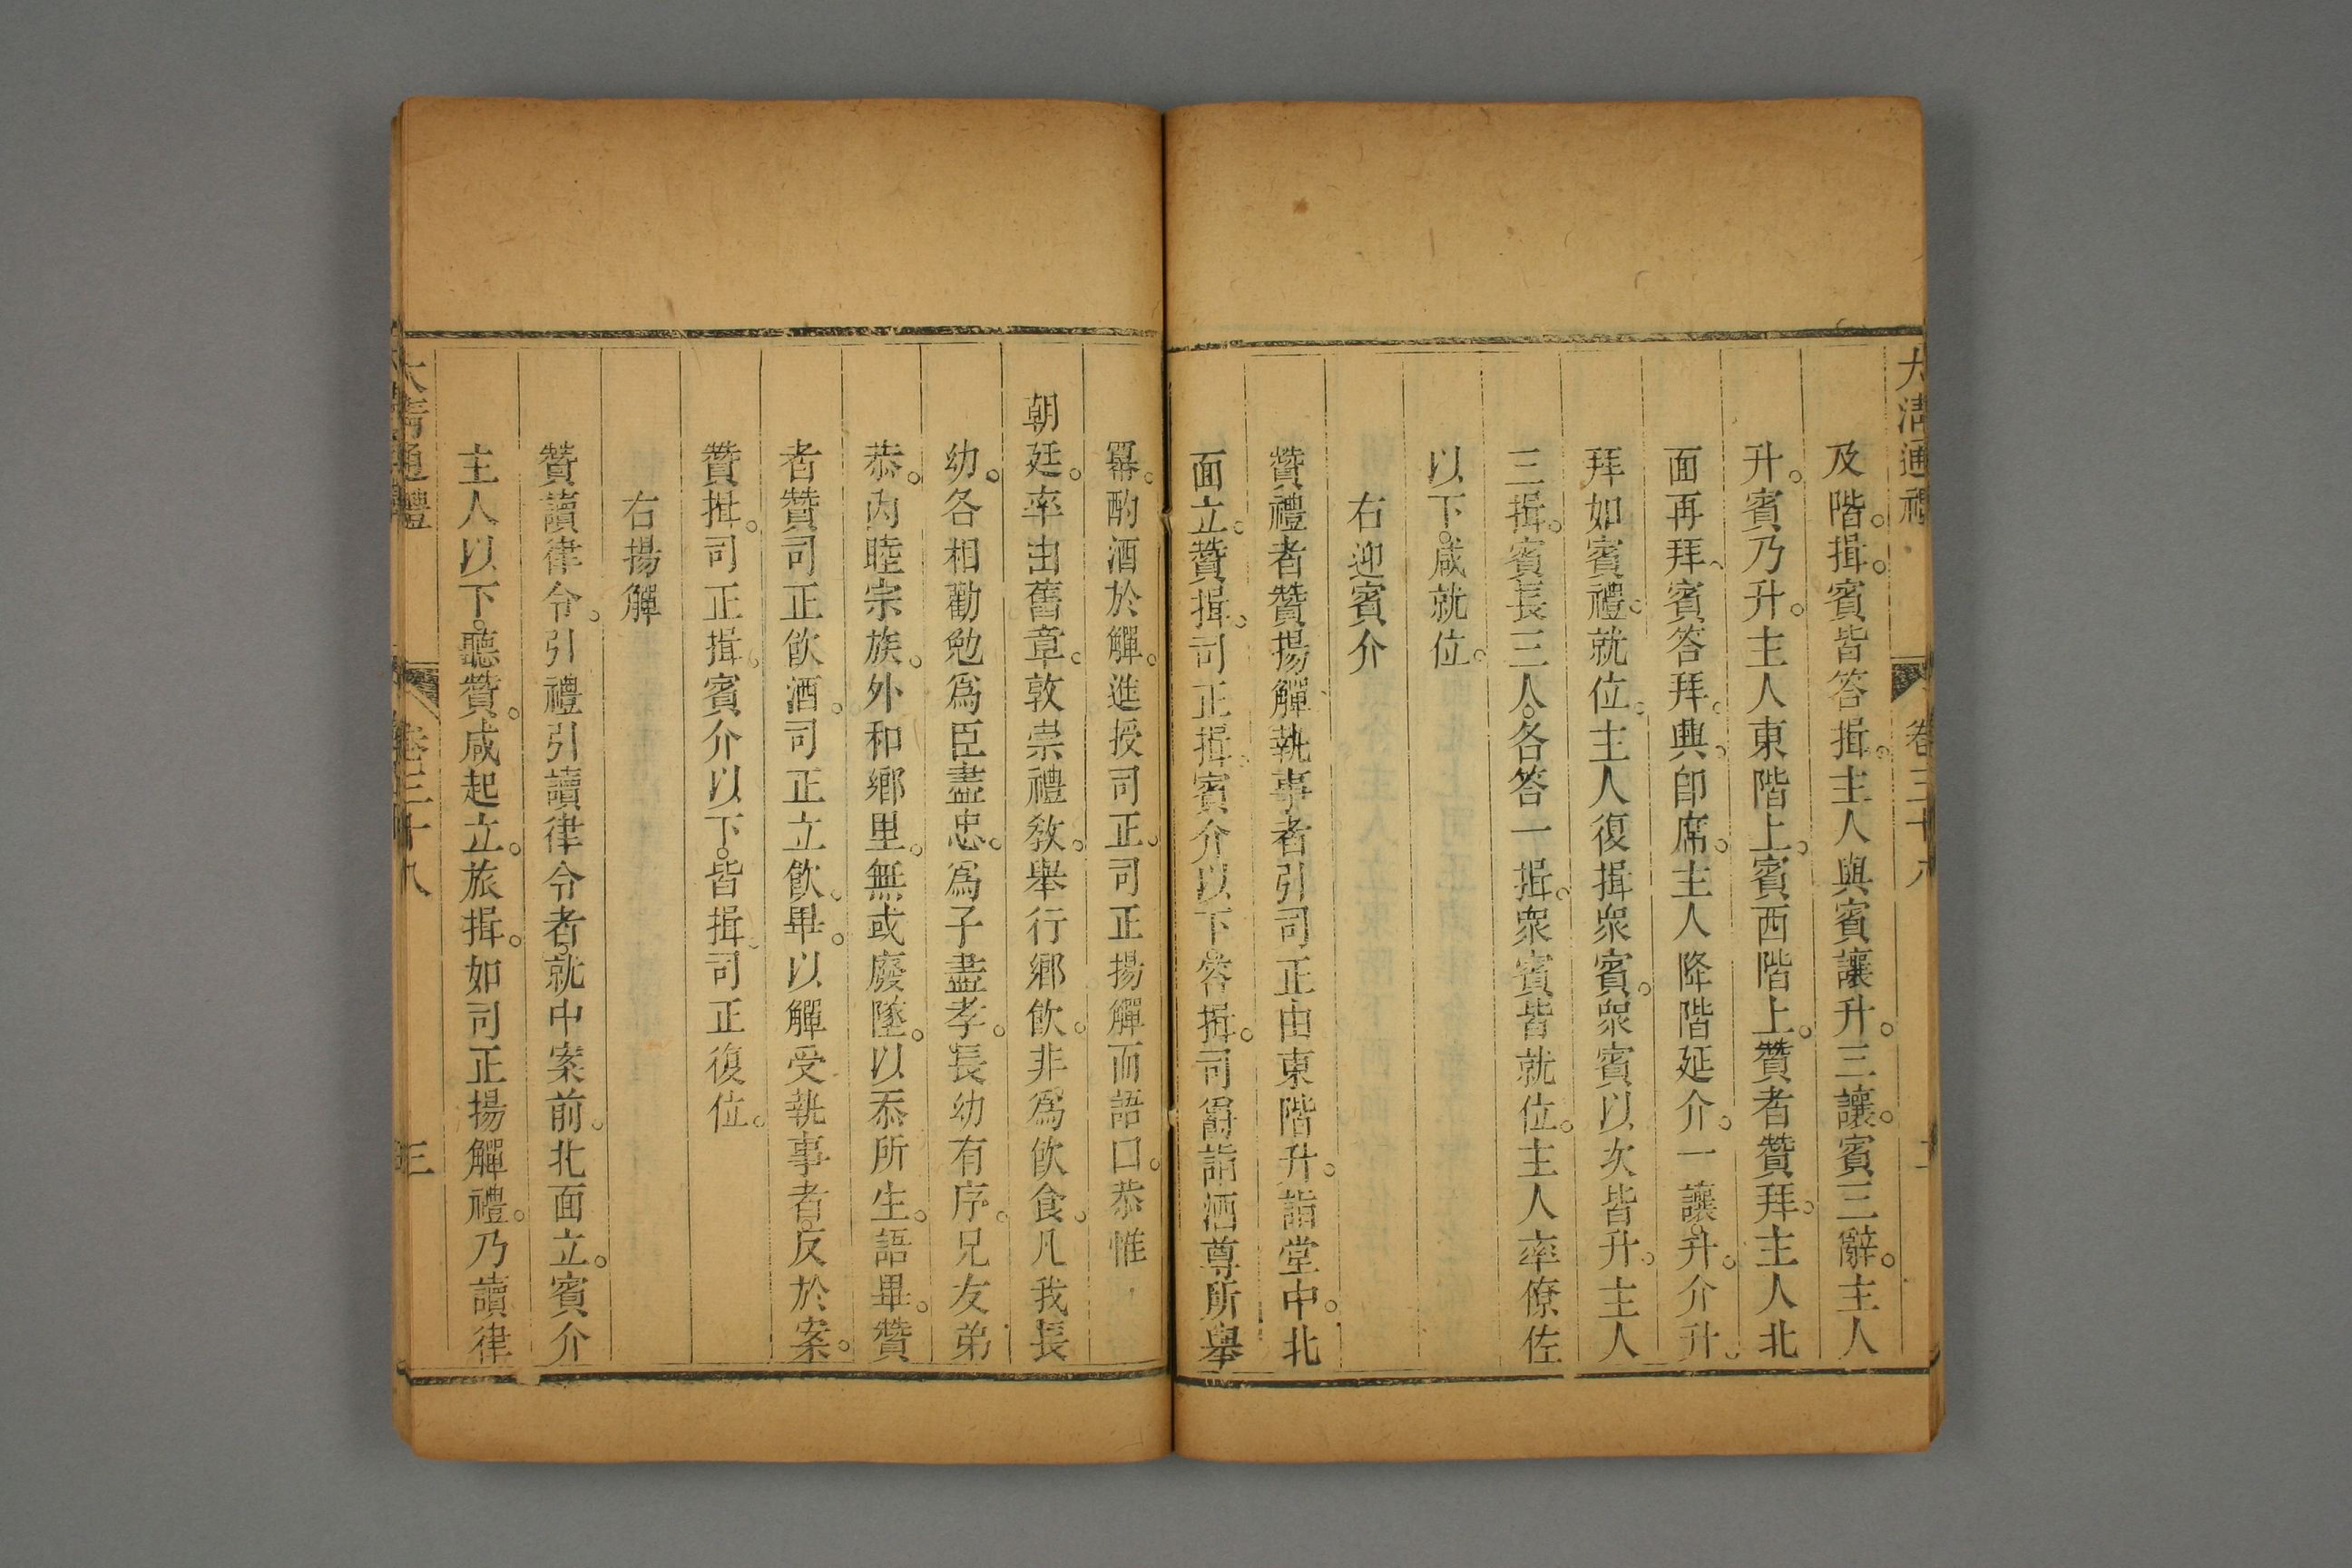 大清通禮 卷三十八
及階。揖。賓皆答揖。主人與賓讓升。三讓。賓三辭。主人
升。賓乃升。主人東階上。賓西階上。贊者贊拜。主人北
面再拜。賓答拜。興。卽席。主人降階延介。一讓。升。介升。
拜如賓禮。就位。主人復揖衆賓。衆賓以次皆升。主人
三揖。賓長三人。各答一揖。衆賓皆就位。主人率僚佐
以下。咸就位。
右迎賓介
贊禮者贊揚觶執事者引司正由東階升。詣堂中。北
面立。贊揖。司正揖。賓介以下答揖。司爵詣酒尊所舉
冪。酌酒於觶。進授司正。司正揚觶而語口。恭惟
朝廷。率由舊章。敦崇禮敎。舉行鄉飮。非爲飮食。凡我長
幼。各相勸勉爲臣盡忠。爲子盡孝。長幼有序。兄友弟
恭。內睦宗族。外和鄉里。無或廢墜。以忝所生。語畢。贊
者贊司正飮酒。司正立飮。畢。以觶受執事者。反於案。
贊揖。司正揖。賓介以下。皆揖。司正復位。
右揚觶
贊讀律令。引禮引讀律令者。就中案前。北面立。賓介
主人以下。聽贊。咸起立。旅揖。如司正揚觶禮。乃讀律
大清通禮 卷三十八 三